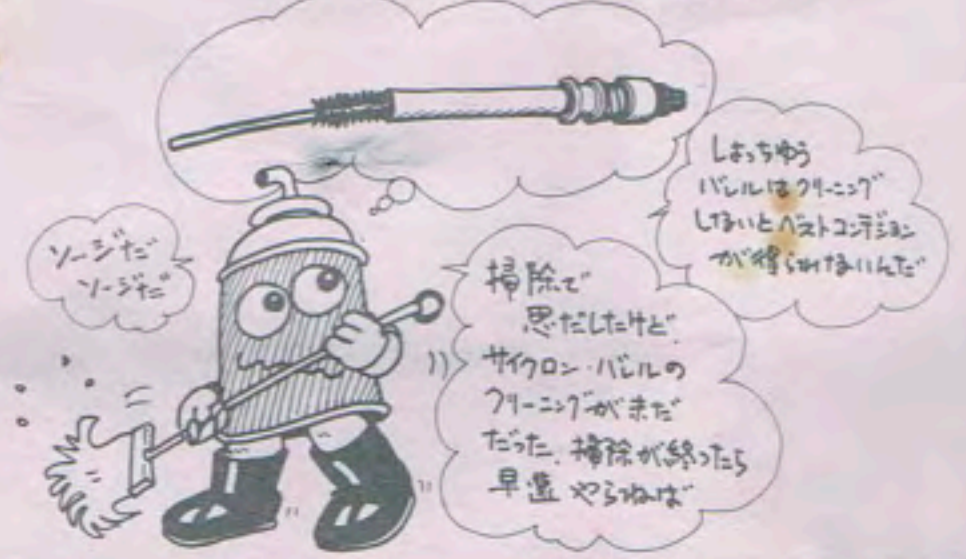 ソージだ
ソージだ
掃除で
思だしたけど、
サイクロン・バレルの
クリーニングが未だ
だった。掃除が終ったら
早速 やらねば
しょっちゆう
バレルはクリーニング
しないとベストコンデション
が得られないんだ